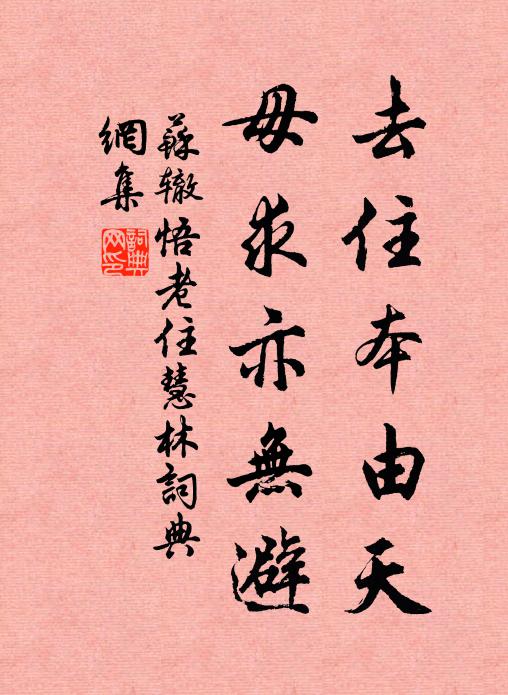 去住本由天
毋求亦無避
蘇辙悟老住慧林詞典
網集
詞典
网印